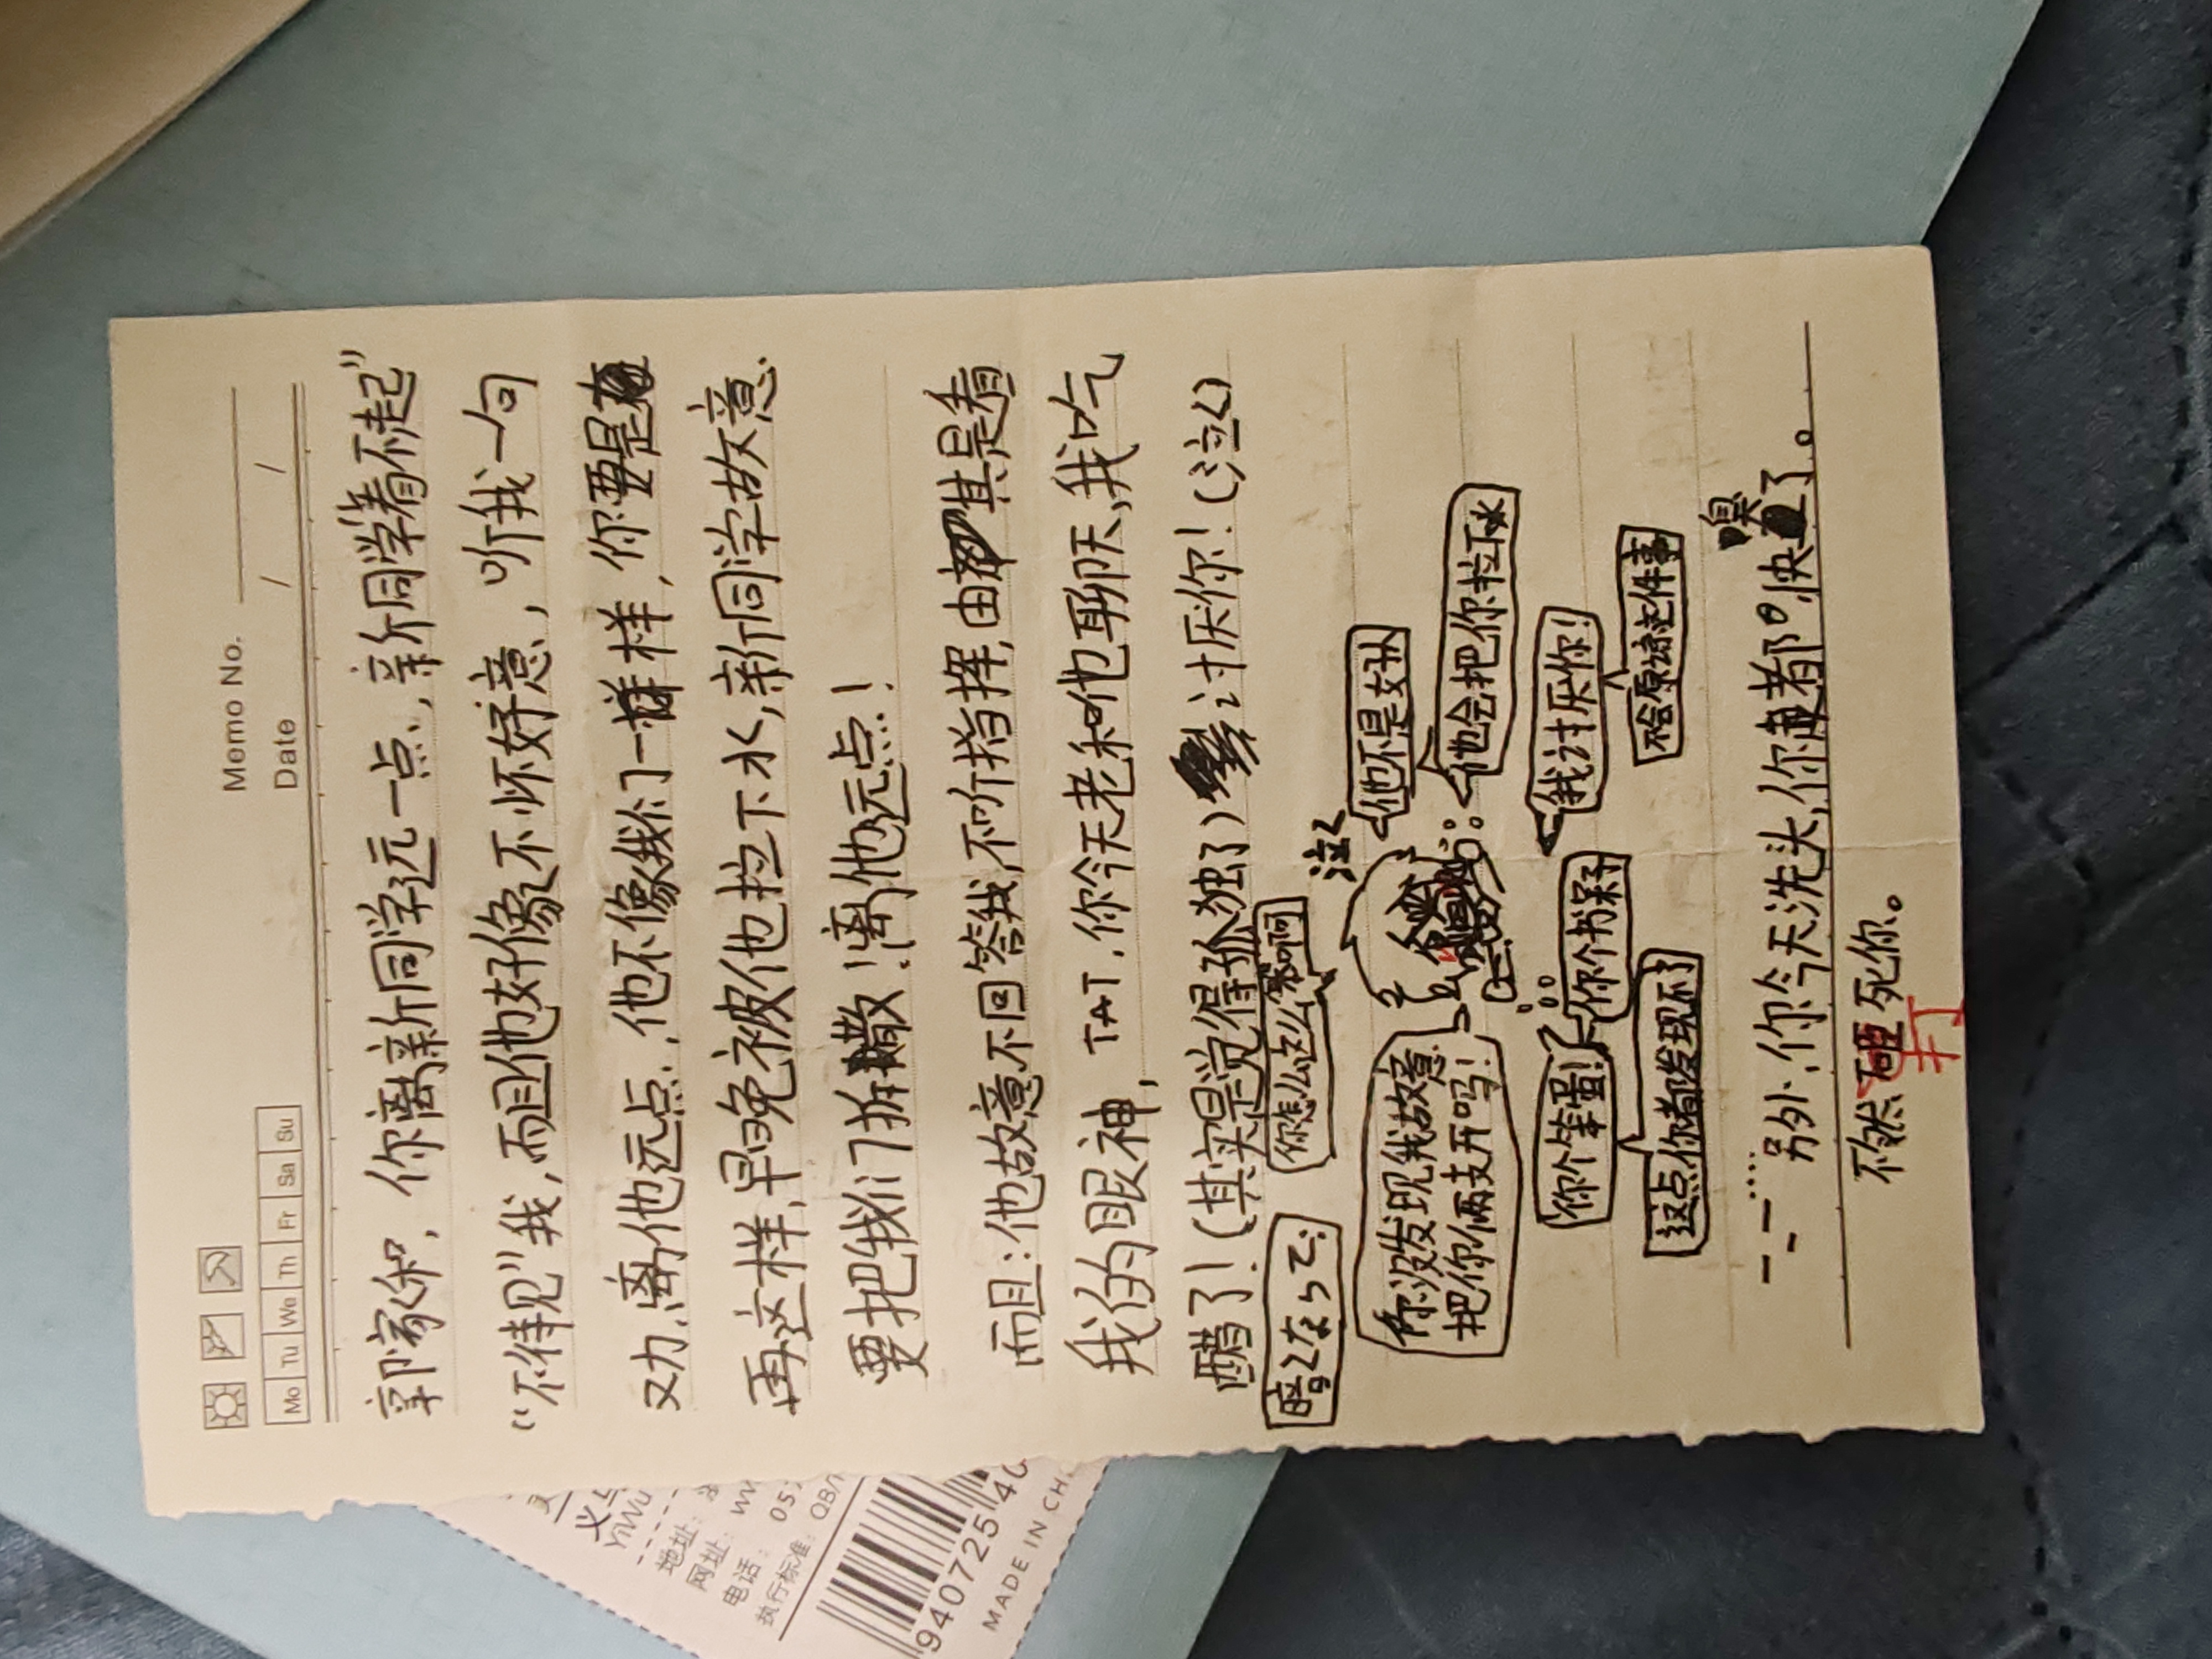 Memo No.
Mo Tu We Th Fr Sa Su
Date / /
郭家伊，你离新同学远一点，新同学看不起"
"不待见"我，而且他好像不怀好意，听我一句
劝，离他远点，他不像我们一样样，你要是
再这样，早晚被他拉下水，新同学故意
要把我们拆散！离他远点！
而且：他故意不回答我，不听指挥，由其是看
我的眼神，TAT，你今天老和他聊天，我吃
醋了！（其实是觉得孤独了）讨厌你！（泣く）
暗くなって
你怎么这么笨啊
泣く
你没发现我故意
把你俩支开吗！
他不是好
他会把你拉下水
你个笨蛋！
你个书呆子
我讨厌你！
这点你都发现不了
不会原谅这件事
另外，你今天洗头，你都快臭了。
不然打死你。
义乌
YiWu
地址：
网址：
电话： 05
执行标准： QB/
940725 40
MADE IN CH